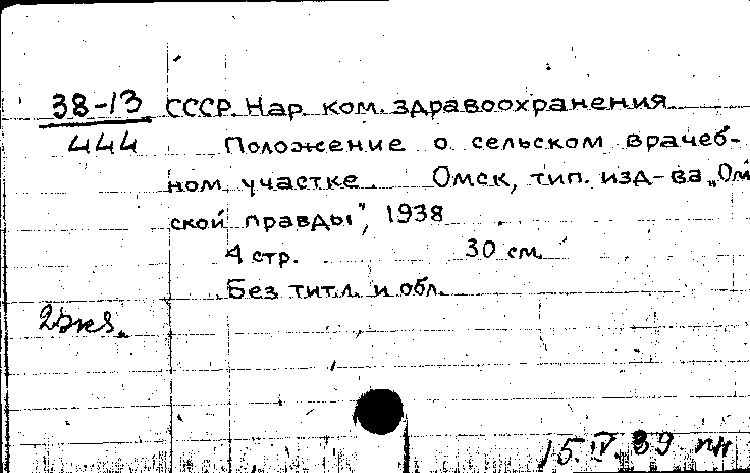 38-13 СССР. Нар. ком. здравоохранения
444 Положение о сельском врачеб-
ном участке. Омск, тип. изд-ва „Ом
ской правды", 1938
4 стр. 30 см.
Без тит.л. и обл.
2 экз.
15.IV.39 пн